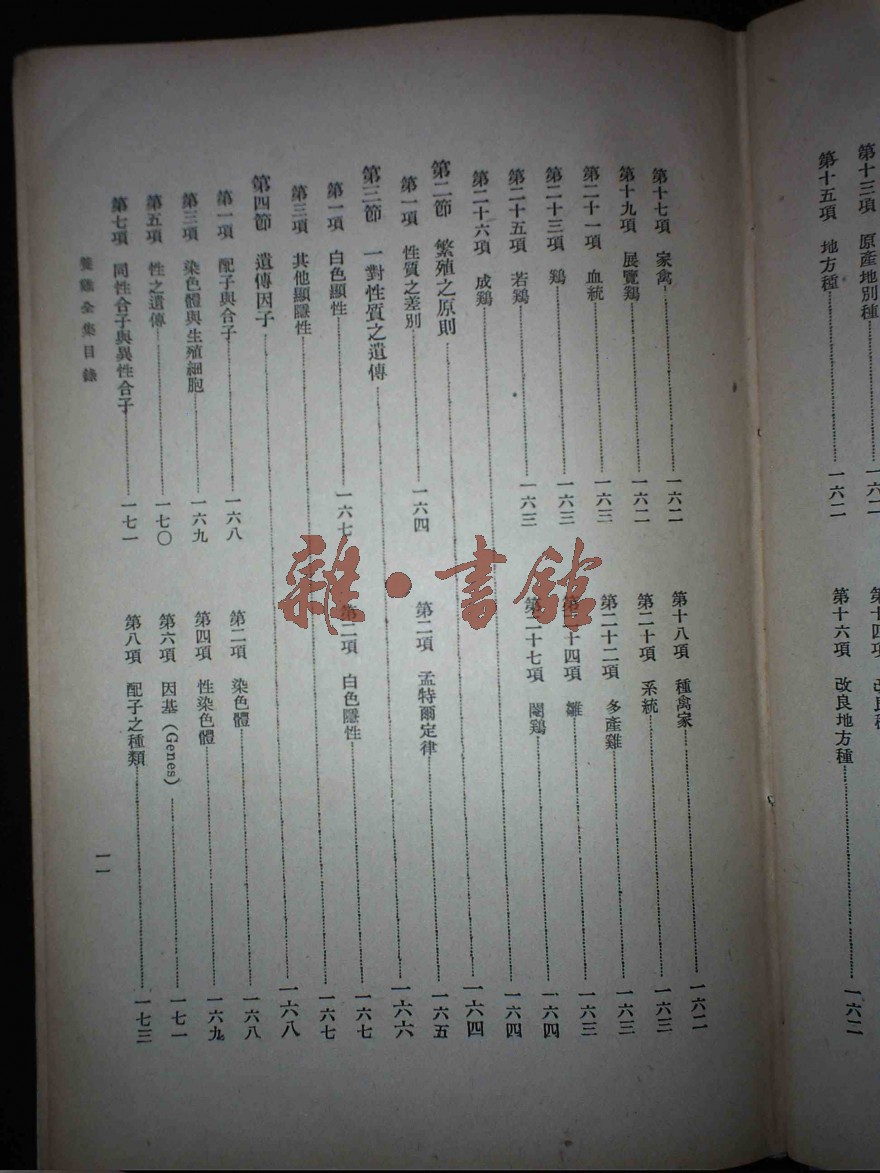 第十三項　原產地別種……一六二
第十四項
第十五項　地方種……一六二　第十六項　改良地方種……一六二
第十七項　家禽……一六二　第十八項　種禽家……一六二
第十九項　展覽鷄……一六二　第二十項　系統……一六三
第二十一項　血統……一六三　第二十二項　多產雞……一六三
第二十三項　鷄……一六三　第二十四項　雛……一六三
第二十五項　若鷄……一六三　第二十七項　閹鷄……一六四
第二十六項　成鷄……一六四
第二節　繁殖之原則……一六四
第一項　性質之差別……一六四　第二項　孟特爾定律……一六五
第三節　一對性質之遺傳……一六六
第一項　白色顯性……一六七　第二項　白色隱性……一六七
第三項　其他顯隱性……一六七
第四節　遺傳因子……一六八
第一項　配子與合子……一六八　第二項　染色體……一六八
第三項　染色體與生殖細胞……一六九　第四項　性染色體……一六九
第五項　性之遺傳……一七〇　第六項　因基（Genes）……一七一
第七項　同性合子與異性合子……一七一　第八項　配子之種類……一七三
養雞全集目錄　一一
雜·書館